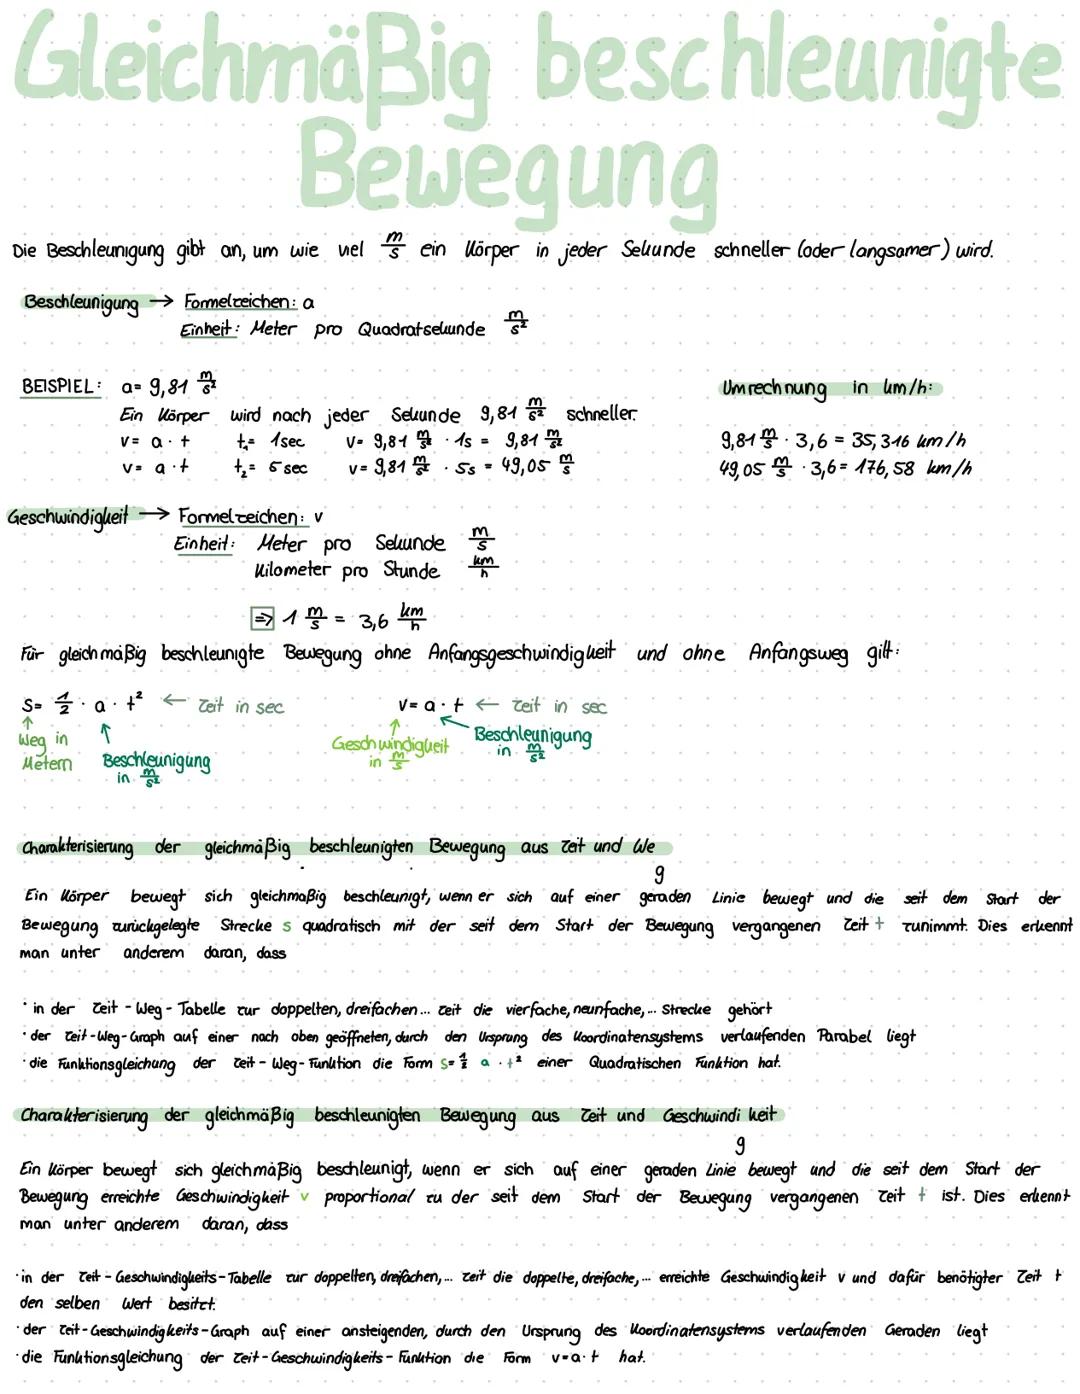 Gleichmäßig beschleunigte
Bewegung
Die Beschleunigung gibt an, um wie viel m/s ein Körper in jeder Sekunde schneller (oder langsamer) wird.
Beschleunigung → Formelzeichen: a
Einheit: Meter pro Quadratsekunde m/s²
BEISPIEL: a= 9,81 m/s² Umrechnung in km/h:
Ein Körper wird nach jeder Sekunde 9,81 m/s² schneller.
v= a · t t₁= 1sec v= 9,81 m/s² · 1s = 9,81 m/s² 9,81 m/s · 3,6 = 35,316 km/h
v= a · t t₂= 5 sec v= 9,81 m/s² · 5s = 49,05 m/s 49,05 m/s · 3,6= 176,58 km/h
Geschwindigkeit → Formelzeichen: v
Einheit: Meter pro Sekunde m/s
Kilometer pro Stunde km/h
⇒ 1 m/s = 3,6 km/h
Für gleichmäßig beschleunigte Bewegung ohne Anfangsgeschwindigkeit und ohne Anfangsweg gilt:
s= 1/2 · a · t² ← Zeit in sec v= a · t ← Zeit in sec
↑ Weg in Metern ↑ Beschleunigung in m/s² ↑ Geschwindigkeit in m/s ↖ Beschleunigung in m/s²
Charakterisierung der gleichmäßig beschleunigten Bewegung aus Zeit und We
g
Ein Körper bewegt sich gleichmäßig beschleunigt, wenn er sich auf einer geraden Linie bewegt und die seit dem Start der
Bewegung zurückgelegte Strecke s quadratisch mit der seit dem Start der Bewegung vergangenen Zeit t zunimmt. Dies erkennt
man unter anderem daran, dass
· in der Zeit - Weg - Tabelle zur doppelten, dreifachen... Zeit die vierfache, neunfache,... Strecke gehört
· der Zeit-Weg-Graph auf einer nach oben geöffneten, durch den Ursprung des Koordinatensystems verlaufenden Parabel liegt
· die Funktionsgleichung der Zeit - Weg - Funktion die Form s= 1/2 a · t² einer Quadratischen Funktion hat.
Charakterisierung der gleichmäßig beschleunigten Bewegung aus Zeit und Geschwindi keit
g
Ein Körper bewegt sich gleichmäßig beschleunigt, wenn er sich auf einer geraden Linie bewegt und die seit dem Start der
Bewegung erreichte Geschwindigkeit v proportional zu der seit dem Start der Bewegung vergangenen Zeit t ist. Dies erkennt
man unter anderem daran, dass
· in der Zeit - Geschwindigkeits-Tabelle zur doppelten, dreifachen,... Zeit die doppelte, dreifache,... erreichte Geschwindigkeit v und dafür benötigter Zeit t
den selben Wert besitzt.
· der Zeit-Geschwindigkeits-Graph auf einer ansteigenden, durch den Ursprung des Koordinatensystems verlaufenden Geraden liegt
· die Funktionsgleichung der Zeit-Geschwindigkeits-Funktion die Form v=a·t hat.